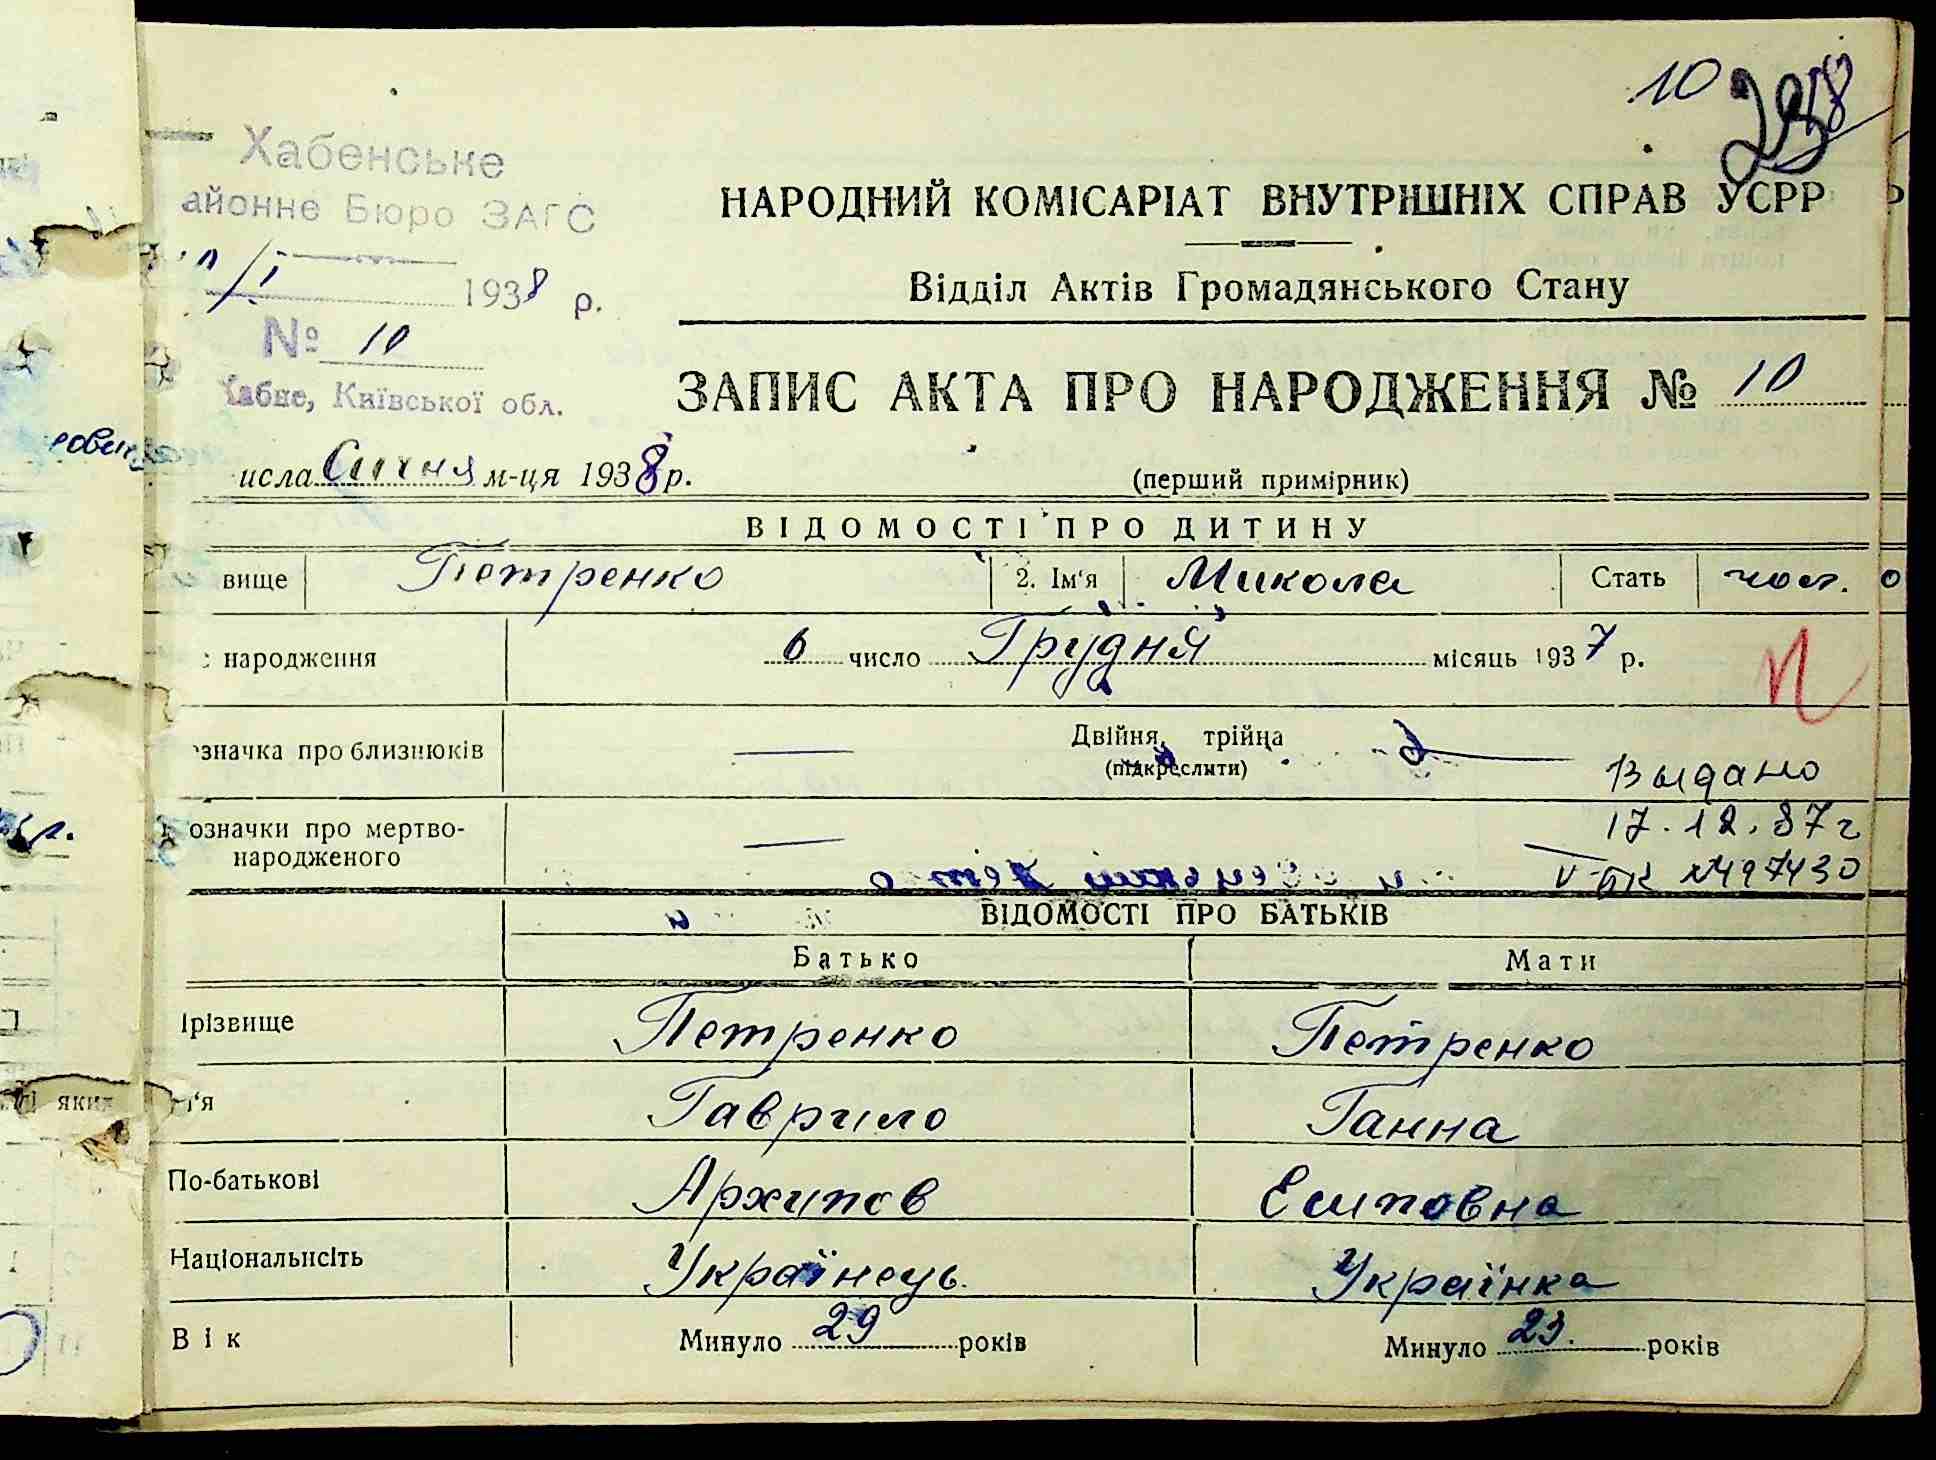 10
238
Хабенське
айонне Бюро ЗАГС
1938 р.
№ 10
Хабне, Київської обл.
НАРОДНИЙ КОМІСАРІАТ ВНУТРІШНІХ СПРАВ УСРР
Відділ Актів Громадянського Стану
ЗАПИС АКТА ПРО НАРОДЖЕННЯ № 10
исла Січня м-ця 1938 р.
(перший примірник)
ВІДОМОСТІ ПРО ДИТИНУ
вище Петренко 2. Ім'я Микола Стать чол.
народження 6 число Грудня місяць 1937 р.
значка про близнюків Двійня, трійня
(підкреслити)
Выдано
означки про мертво-
народженого
17.12.87 г
V-БК №497430
ВІДОМОСТІ ПРО БАТЬКІВ
Батько Мати
різвище Петренко Петренко
м'я Гаврило Ганна
По-батькові Архипов Есиповна
Національність Українець. Українка
Вік Минуло 29 років Минуло 23. років